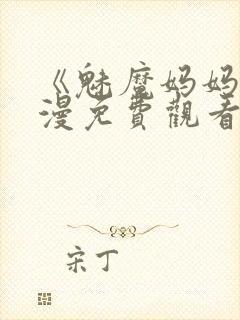 《魅魔妈妈
漫免費觀看
宋丁